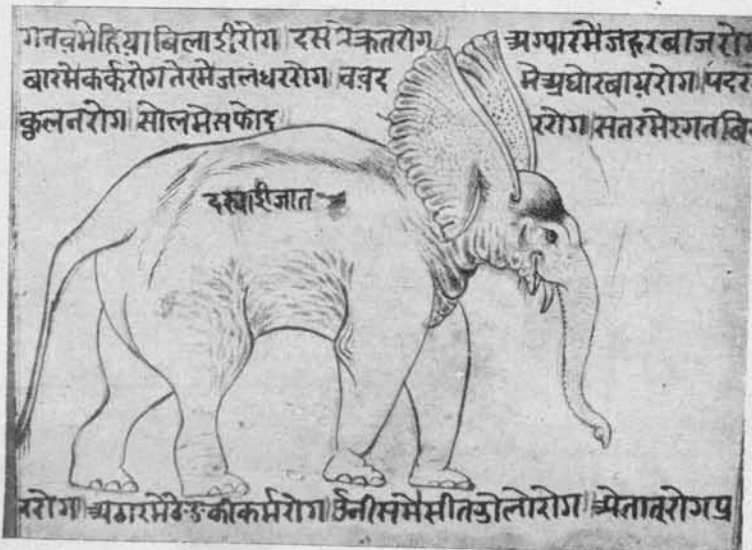 गनवमेहियाबिलाईरोग दसमेक्रतरोग अग्यारमैजहरबाजरो
बारमेकर्करोग तेरमेजलंधररोग चवद मेअघोरबायरोग पदर
कुलनरोग सोलमेसफोद ररोग सतरमेरगतबि
दरयाईजात
ररोग अठारमे कर्मरोग उनीसमेसीतडोलोरोग